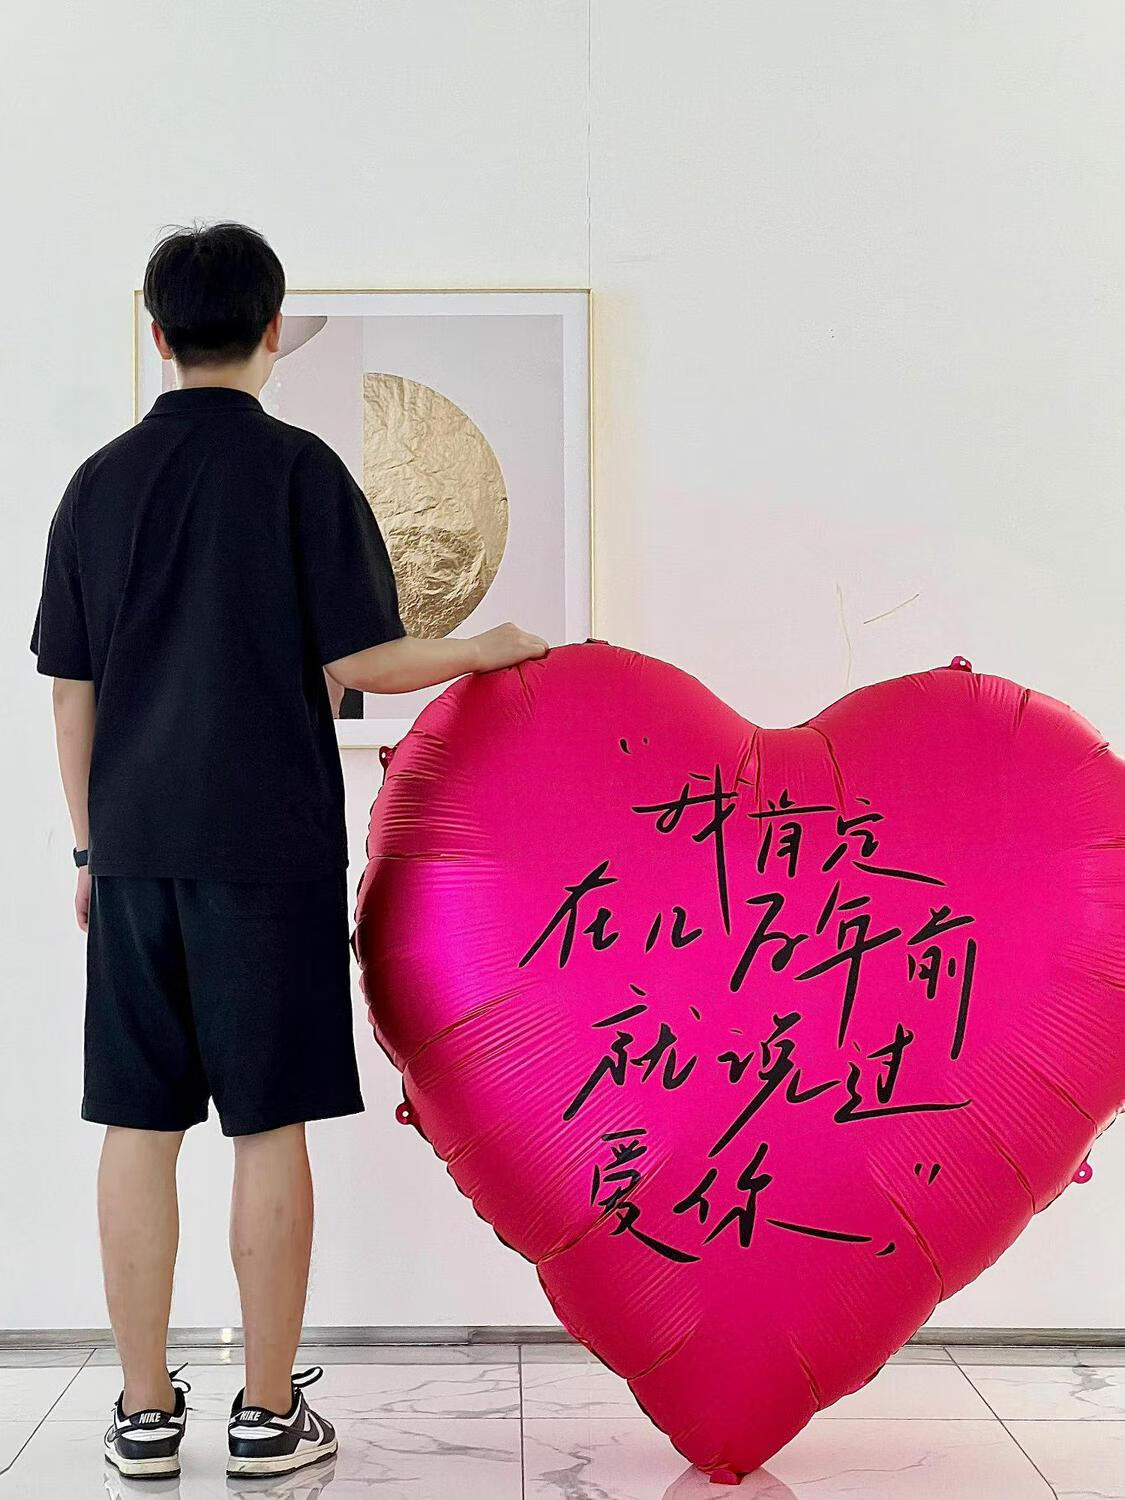 "我肯定
在几万年前
就说过
爱你，"
NIKE
NIKE